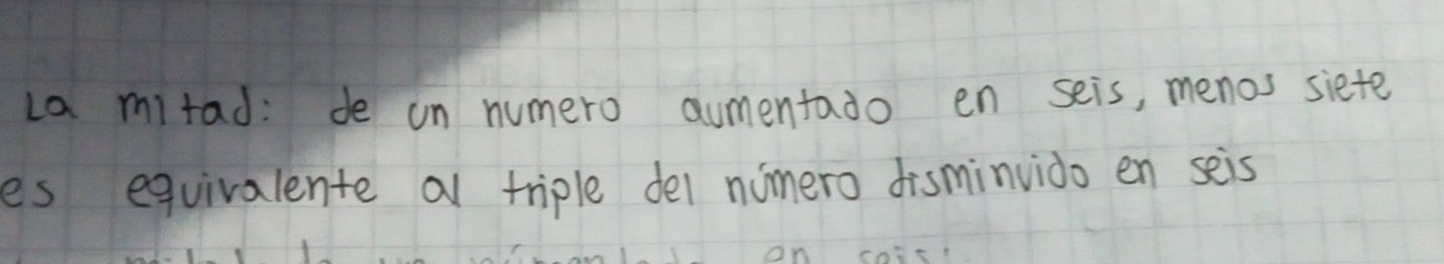 La mitad: de un numero aumentado en seis, menos siete
es equivalente al triple del número disminuido en seis
en seis